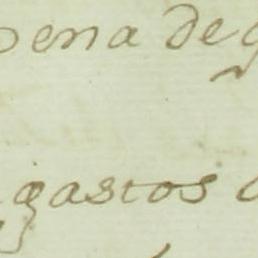 pena de
gastos